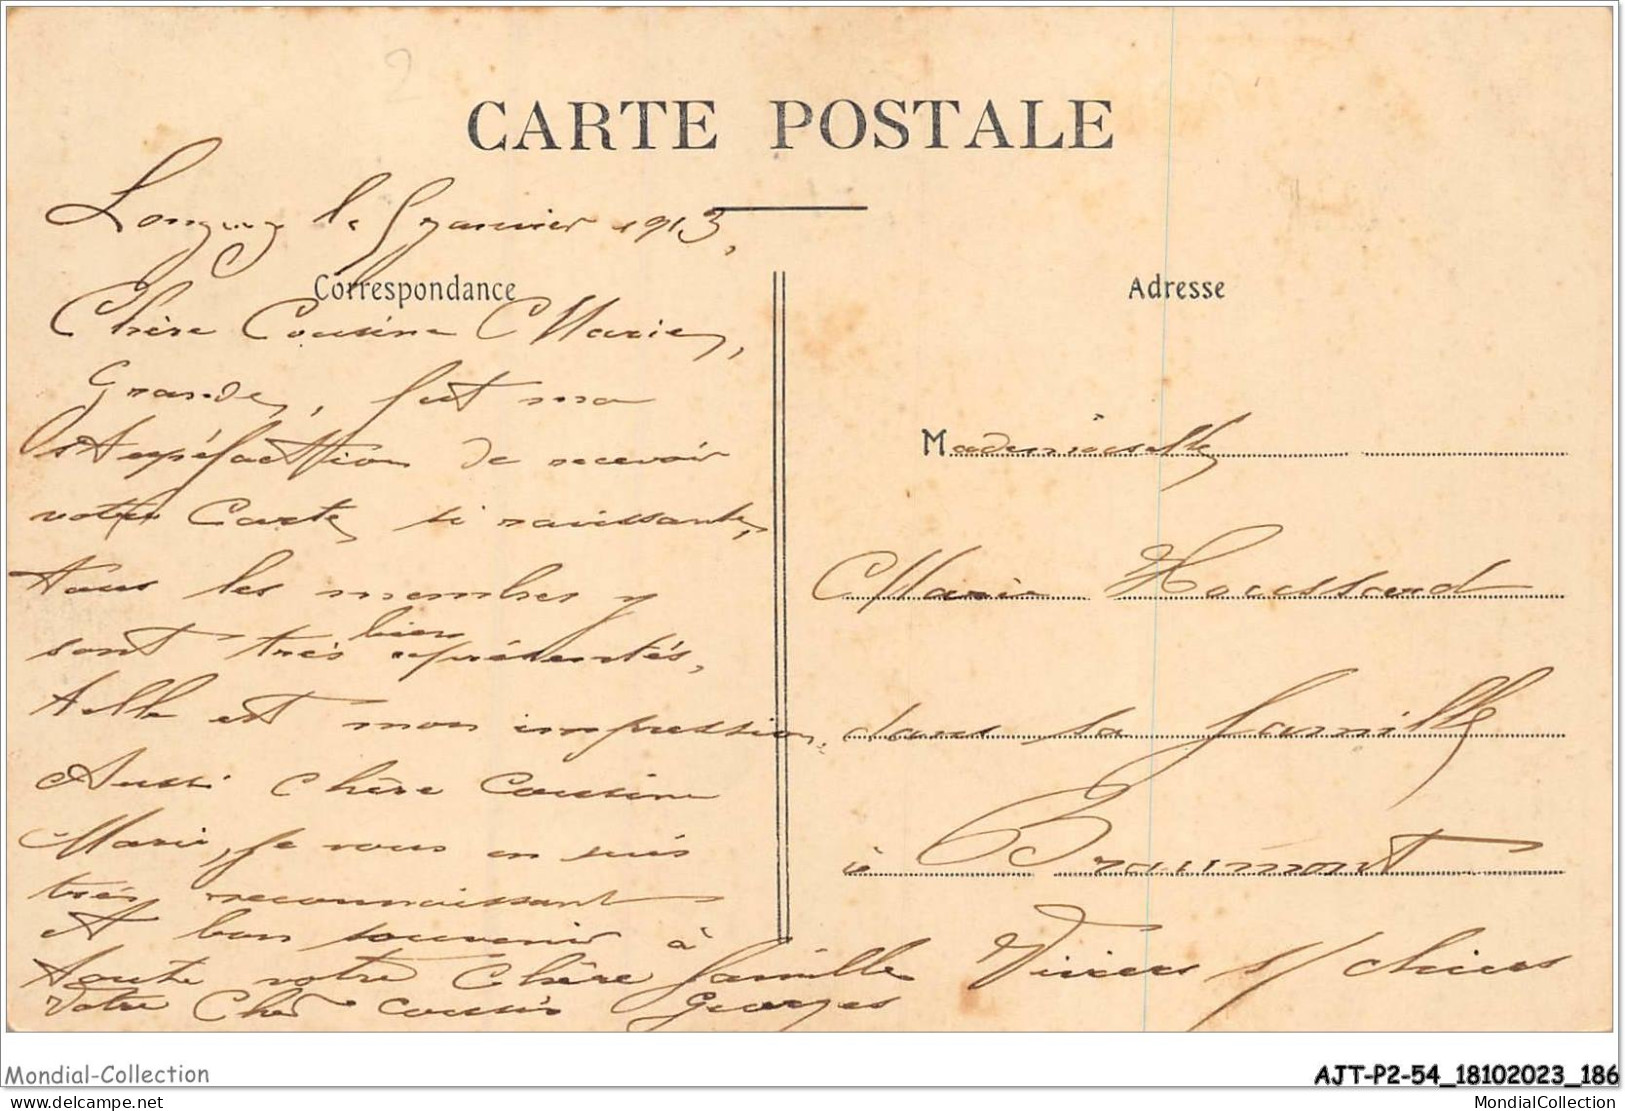 CARTE POSTALE
Longuy le 5 janvier 1913,
Correspondance
Chère Cousine Marie,
Grande, fut ma
stupéfacttion de recevoir
votre Carte, si ravissante,
tous les membres y
sont très bien représentés,
telle est mon impression,
Aussi chère Cousine
Marie, je vous en suis
très reconnaissant
Et bon souvenir à
toute votre Chère famille
Votre Cher cousin Georges
Adresse
Mademoiselle
Marie Houssard
dans sa famille
à Braumont
Viviers s/ chiers
Mondial-Collection
mondial-collection.com
AJT-P2-54_18102023_186
MondialCollection